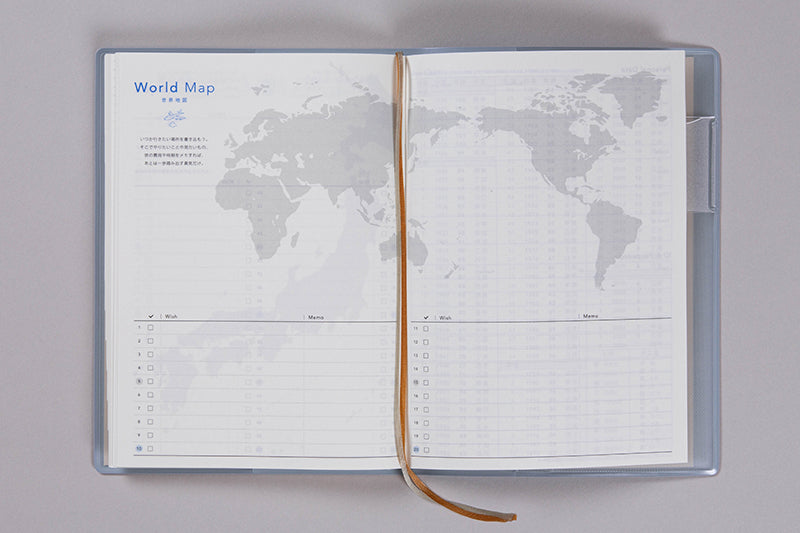 World Map
世界地図
いつか行きたい場所を書き込もう。
そこでやりたいことや見たいもの、
旅の費用や時期をメモすれば、
あとは一歩踏み出す勇気だけ。
Wish
Memo
1
2
3
4
5
6
7
8
9
10
Wish
Memo
11
12
13
14
15
16
17
18
19
20
Personal Data